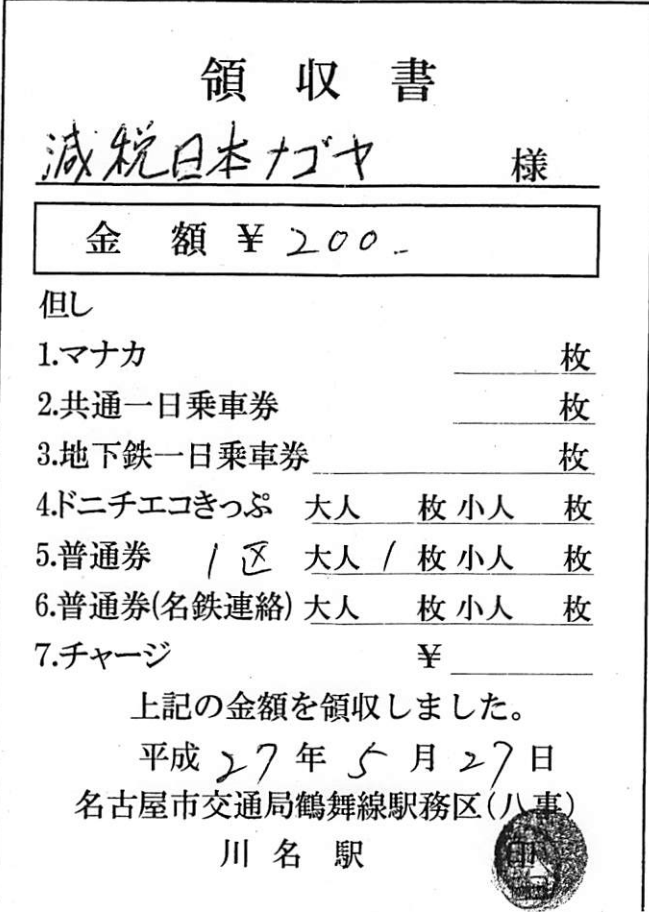 領収書
減税日本ナゴヤ 様
金額 ¥200-
但し
1.マナカ 枚
2.共通一日乗車券 枚
3.地下鉄一日乗車券 枚
4.ドニチエコきっぷ 大人 枚 小人 枚
5.普通券 1区 大人 1 枚 小人 枚
6.普通券(名鉄連絡) 大人 枚 小人 枚
7.チャージ ¥
上記の金額を領収しました。
平成 27 年 5 月 27 日
名古屋市交通局鶴舞線駅務区(八事)
川名駅
印